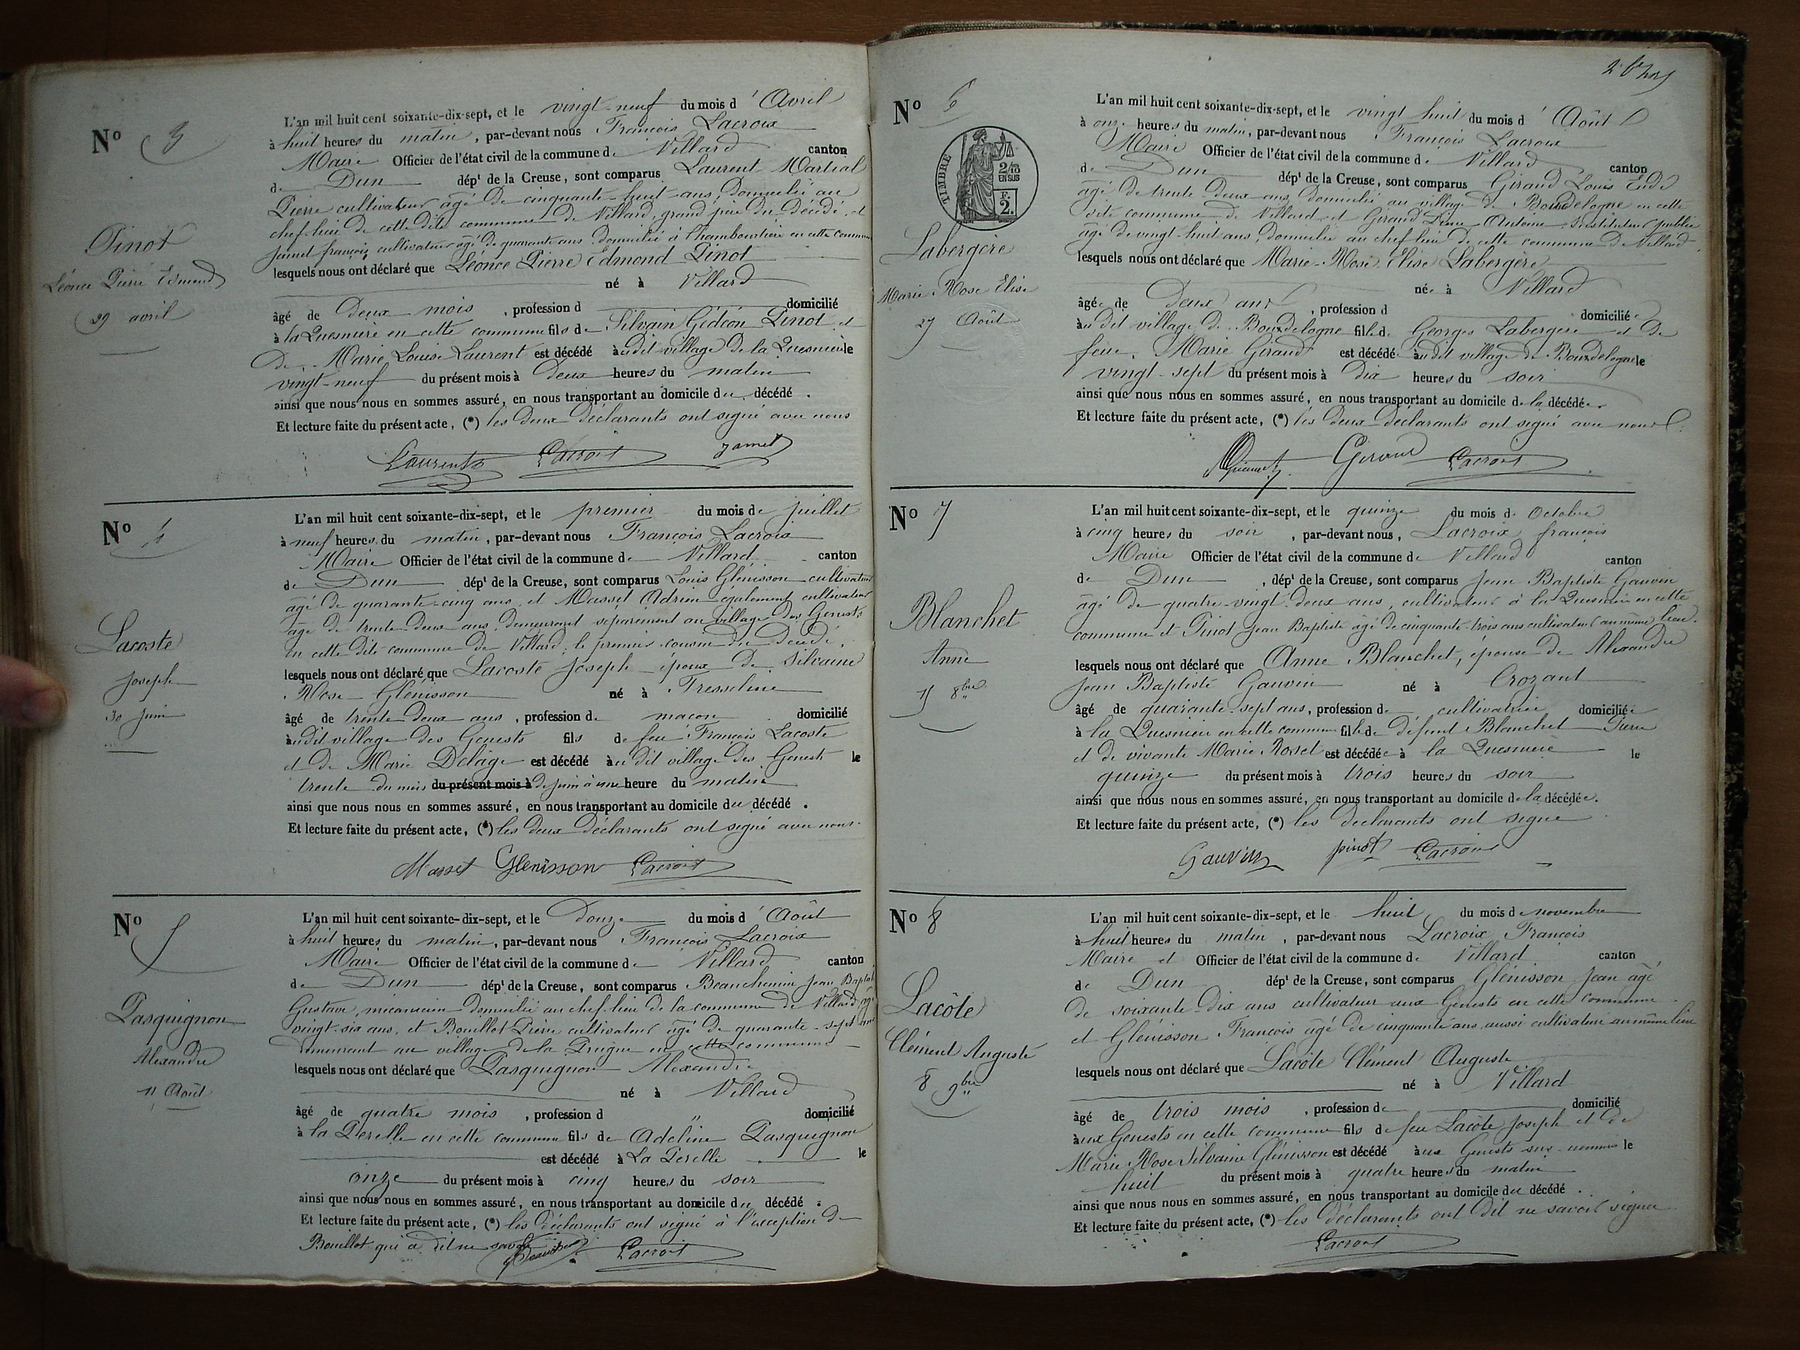 N° 3
Pinot
Léonce Pierre Edmond
29 avril
L'an mil huit cent soixante-dix-sept, et le vingt-neuf du mois d'Avril
à huit heures du matin, par-devant nous François Lacroix
Maire Officier de l'état civil de la commune de Villard canton
de Dun dépt de la Creuse, sont comparus Laurent Martial
Pierre cultivateur âgé de cinquante-huit ans, domicilié au
chef-lieu de cette dite commune de Villard, grand père du décédé, et
Jamet françois, cultivateur âgé de quarante ans domicilié à en cette commune
lesquels nous ont déclaré que Léonce Pierre Edmond Pinot
né à Villard
âgé de deux mois, profession d domicilié
à la Quesnière en cette commune fils de Silvain Gédéon Pinot et
de Marie Louise Laurent est décédé audit village de la Quesnière le
vingt-neuf du présent mois à deux heures du matin
ainsi que nous nous en sommes assuré, en nous transportant au domicile du décédé.
Et lecture faite du présent acte, (*) les deux déclarants ont signé avec nous
Laurent Lacroix Jamet
N° 4
Lacoste
Joseph
30 Juin
L'an mil huit cent soixante-dix-sept, et le premier du mois de juillet
à neuf heures du matin, par-devant nous François Lacroix
Maire Officier de l'état civil de la commune de Villard canton
de Dun dépt de la Creuse, sont comparus Louis Glénisson cultivateur
âgé de quarante-cinq ans et Masset Adrien également cultivateur
âgé de trente deux ans, demeurant séparément au village des Genests
en cette dite commune de Villard, le premier cousin du décédé,
lesquels nous ont déclaré que Lacoste Joseph époux de Silvaine
Rose Glénisson né à Fresseline
âgé de trente deux ans, profession de maçon domicilié
audit village des Genests fils de feu François Lacoste
et de Marie Delage est décédé audit village des Genests le
trente du mois du présent mois à de juin à une heure du matin
ainsi que nous nous en sommes assuré, en nous transportant au domicile du décédé.
Et lecture faite du présent acte, (*) les deux déclarants ont signé avec nous.
Masset Glénisson Lacroix
N° 5
Pasquignon
Alexandre
11 Août
L'an mil huit cent soixante-dix-sept, et le Douze du mois d'Août
à huit heures du matin, par-devant nous François Lacroix
Maire Officier de l'état civil de la commune de Villard canton
de Dun dépt de la Creuse, sont comparus Beauchemin Jean Baptiste
Gustave, mécanicien domicilié au chef-lieu de la commune de Villard âgé
vingt-six ans, et Bouillot Pierre cultivateur âgé de quarante-sept ans
demeurant au village de la en cette commune
lesquels nous ont déclaré que Pasquignon Alexandre
né à Villard
âgé de quatre mois, profession d domicilié
à la Perelle en cette commune fils de Adeline Pasquignon
est décédé à La Perelle le
onze du présent mois à cinq heures du soir
ainsi que nous nous en sommes assuré, en nous transportant au domicile du décédé.
Et lecture faite du présent acte, (*) les déclarants ont signé à l'exception de
Bouillot qui a dit ne savoir
Lacroix
N° 6
TIMBRE
2/10
EN SUS
F.
2.
Labergère
Marie Rose Elise
27 Août
L'an mil huit cent soixante-dix-sept, et le vingt huit du mois d'Août
à onze heures du matin, par-devant nous François Lacroix
Maire Officier de l'état civil de la commune de Villard canton
de Dun dépt de la Creuse, sont comparus Giraud Louis
âgé de trente deux ans, domicilié au village de Bourdelogne en cette
dite commune de Villard et Giraud Antoine Instituteur public
âgé de vingt-huit ans, domicilié au chef-lieu de cette commune de Villard
lesquels nous ont déclaré que Marie-Rose Elise Labergère
née à Villard
âgée de Deux ans, profession d domicilié
au dit village de Bourdelogne fille d. Georges Labergère et de
feue Marie Giraud est décédé audit village de Bourdelogne le
vingt-sept du présent mois à dix heures du soir
ainsi que nous nous en sommes assuré, en nous transportant au domicile de la décédée.
Et lecture faite du présent acte, (*) les deux déclarants ont signé avec nous
Giraud Lacroix
N° 7
Blanchet
Anne
15 8bre
L'an mil huit cent soixante-dix-sept, et le quinze du mois de Octobre
à cinq heures du soir, par-devant nous, Lacroix françois
Maire Officier de l'état civil de la commune de Villard canton
de Dun, dépt de la Creuse, sont comparus Jean Baptiste Gauvin
âgé de quatre-vingt-deux ans, cultivateur à la Quesnière en cette
commune et Pinot Jean Baptiste âgé de cinquante-trois ans cultivateur au même lieu.
lesquels nous ont déclaré que Anne Blanchet, épouse de Alexandre
Jean Baptiste Gauvin né à Crozant
âgé de quarante-sept ans, profession de cultivatrice domiciliée
à la Quesnière en cette commune fille de défunt Blanchet Pierre
et de vivante Marie Rosset est décédée à la Quesnière le
quinze du présent mois à trois heures du soir
ainsi que nous nous en sommes assuré, en nous transportant au domicile de la décédée.
Et lecture faite du présent acte, (*) les déclarants ont signé
Gauvin pinot Lacroix
N° 8
Lacôte
Clément Auguste
8 9bre
L'an mil huit cent soixante-dix-sept, et le huit du mois de novembre
à huit heures du matin, par-devant nous Lacroix François
Maire et Officier de l'état civil de la commune de Villard canton
de Dun dépt de la Creuse, sont comparus Glénisson Jean âgé
de soixante-dix ans cultivateur aux Genests en cette commune
et Glénisson François âgé de cinquante ans aussi cultivateur au même lieu
lesquels nous ont déclaré que Lacôte Clément Auguste
né à Villard
âgé de trois mois, profession de domicilié
aux Genests en cette commune fils de feu Lacôte Joseph et de
Marie Rose Silvaine Glénisson est décédé aux Genests sus-nommé le
huit du présent mois à quatre heures du matin
ainsi que nous nous en sommes assuré, en nous transportant au domicile du décédé.
Et lecture faite du présent acte, (*) les déclarants ont dit ne savoir signer
Lacroix